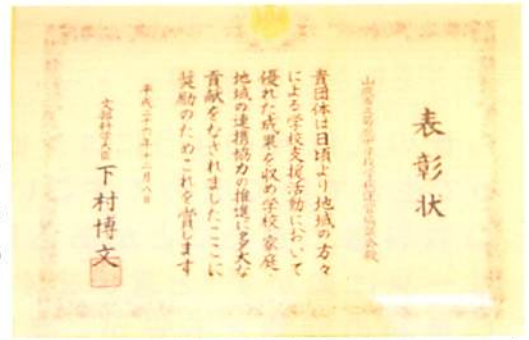 表彰状
貴団体は日頃より地域の方々
による学校支援活動において
優れた成果を収め学校家庭
地域の連携協力の推進に多大な
貢献をなされましたここに
奨励のためこれを賞します
平成二十六年十二月八日
文部科学大臣 下村博文